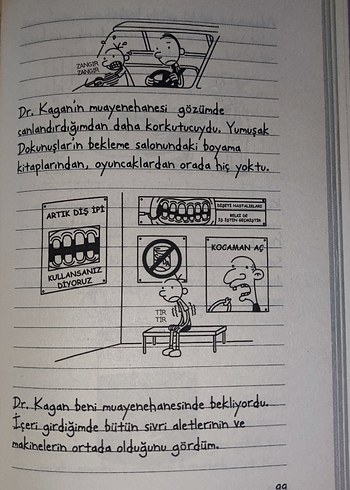 ZANGIR
ZANGIR
Dr. Kagan'in muayenehanesi gözümde
canlandırdığımdan daha korkutucuydu. Yumuşak
Dokunuşlar'ın bekleme salonundaki boyama
kitaplarından, oyuncaklardan orada hiç yoktu.
ARTIK DİŞ İPİ
KULLANSANIZ
DİYORUZ
DİŞETİ HASTALIKLARI
BELKİ DE
İŞ İŞTEN GEÇMİŞTİR
KOCAMAN AÇ
TİR
TİR
Dr. Kagan beni muayenehanesinde bekliyordu.
İçeri girdiğimde bütün sivri aletlerinin ve
makinelerin ortada olduğunu gördüm.
99